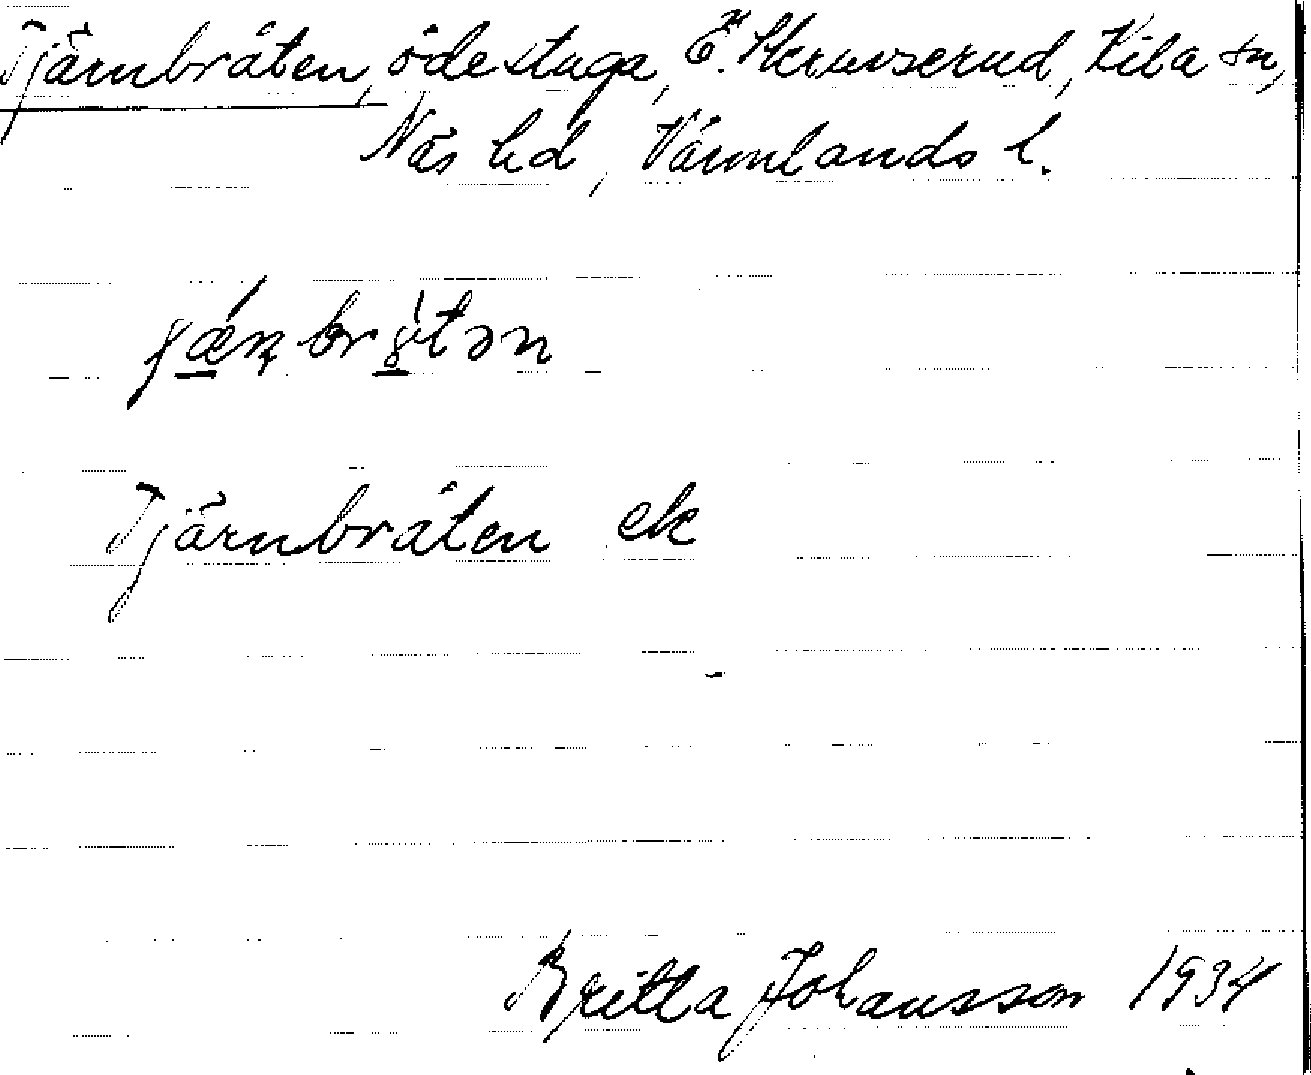 Tjärnbråten, ödestuga, Ö. Skruvserud, Kila sn,
Näs hd, Värmlands l.
Tjärnbråten ek
Britta Johansson 1934